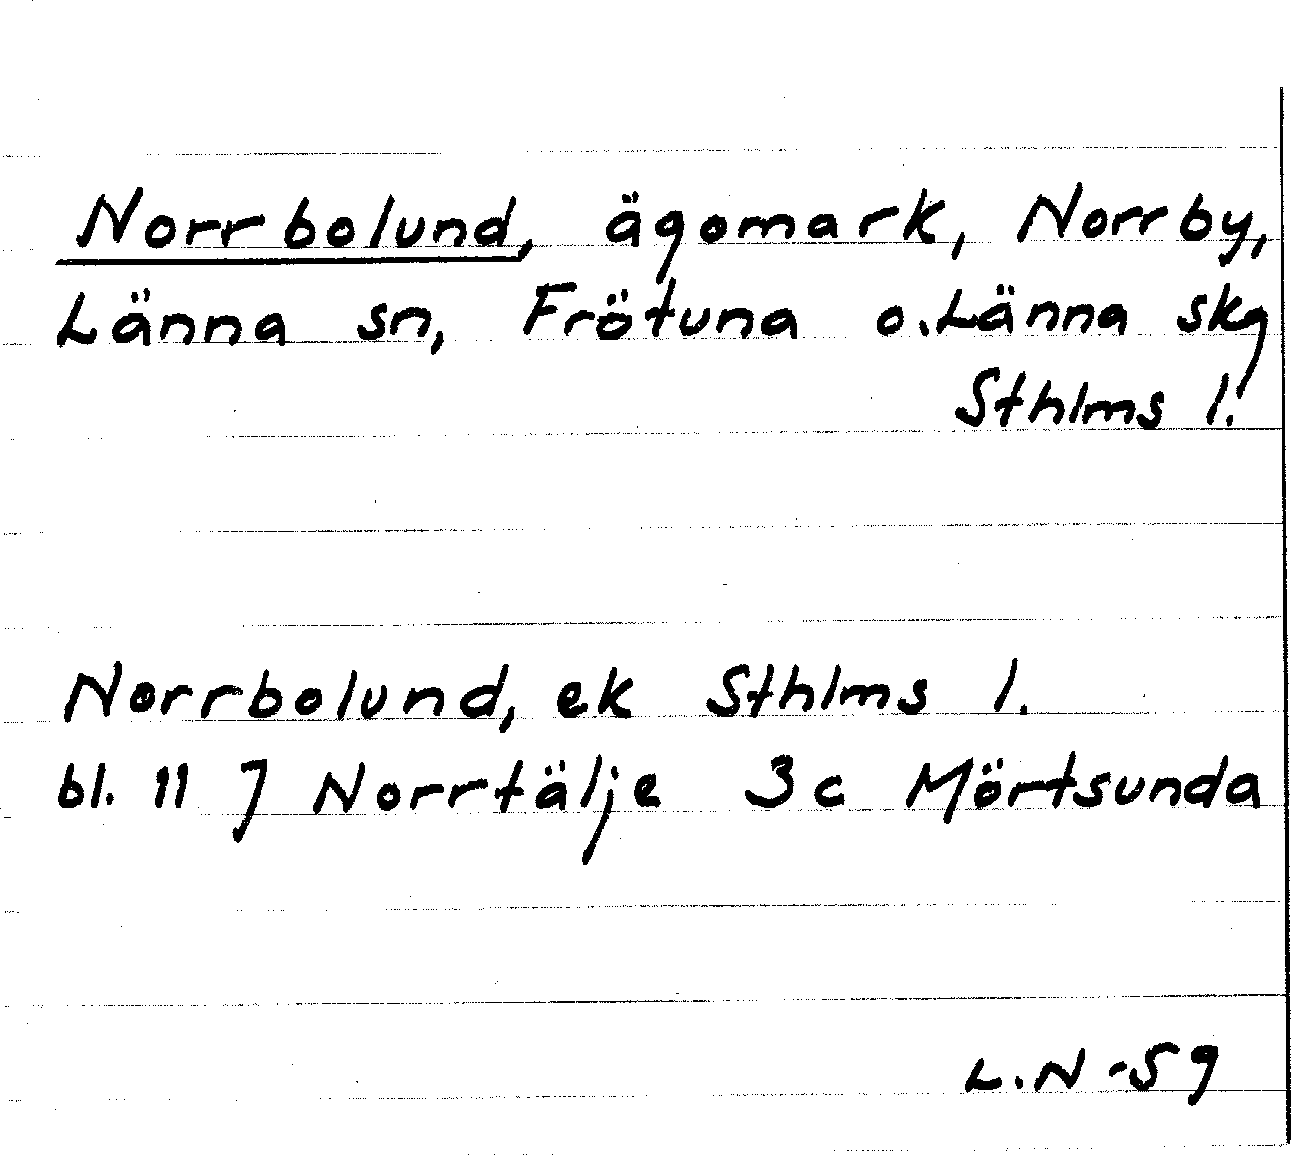 Norrbolund, ägomark, Norrby,
Länna sn, Frötuna o. Länna skg
Sthlms l.
Norrbolund, ek Sthlms l.
bl. 11 J Norrtälje 3c Mörtsunda
L.N -59